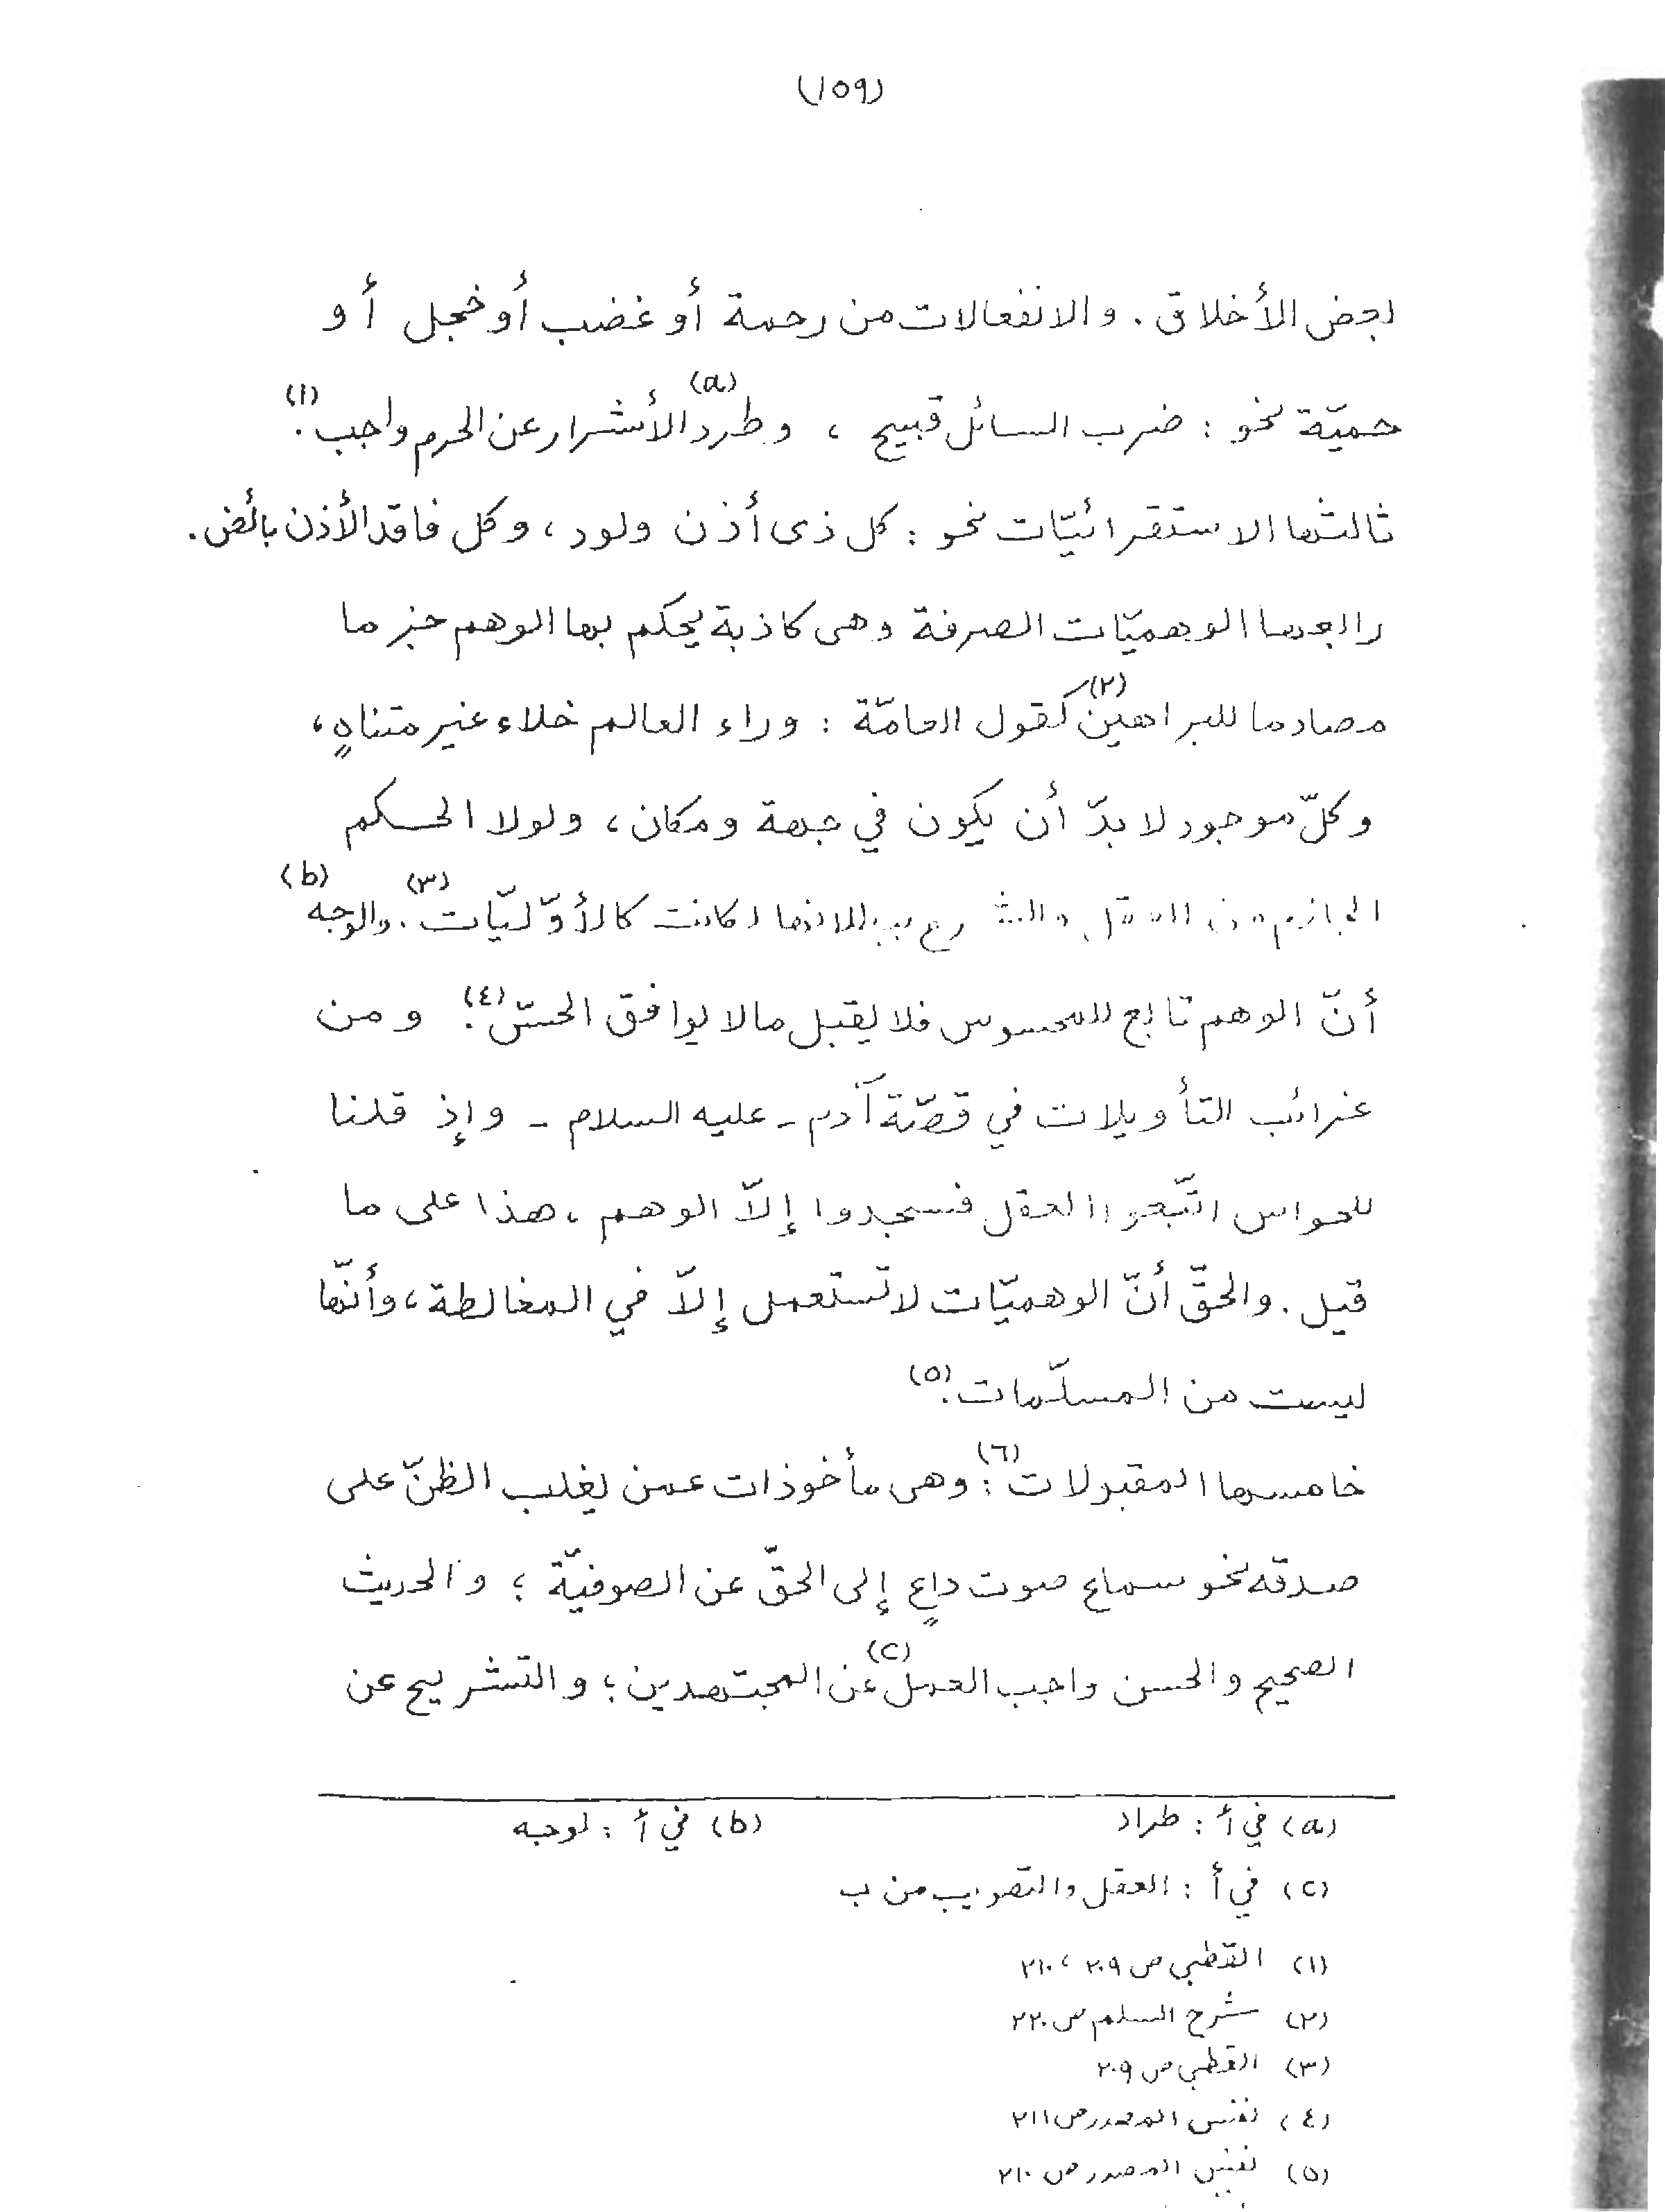 (١٥٩)
بعض الأخلاق . والانفعالات من رحمة أو غضب أو خجل أو
حميّة نحو : ضرب السائل قبيح ، وطرد(a) الأشرار عن الحرم واجب(١).
ثالثها الاستقرائيّات نحو : كل ذى أذن ولود ، وكل فاقد الأذن بائض .
رابعها الوهميّات الصرفة وهى كاذبة يحكم بها الوهم جزما
مصادما للبراهين(٢) كقول العامّة : وراء العالم خلاء غير متناهٍ ،
وكلّ موجود لا بدّ أن يكون في جهة ومكان ، ولولا الحكم
الجازم من العقل والشرع ببطلانها لكانت كالأوّليّات(٣). والوجه(b)
أنّ الوهم تابع للمحسوس فلا يقبل مالا يوافق الحسّ(٤). ومن
غرائب التأويلات في قصّة آدم - عليه السلام - وإذ قلنا
للحواس اتّبعوا العقل فسجدوا إلّا الوهم ، هذا على ما
قيل . والحقّ أنّ الوهميّات لا تستعمل إلّا في المغالطة ، وأنّها
ليست من المسلّمات(٥).
خامسها المقبولات(٦): وهى مأخوذات عمن يغلب الظنّ على
صدقه نحو سماع صوت داعٍ إلى الحقّ عن الصوفيّة ؛ والحديث
الصحيح والحسن واجب العمل(c) عن المجتهدين ؛ والتشريح عن
(a) في أ : طراد (b) في أ : لوجه
(c) في أ : العقل والتصويب من ب
(١) القطبي ص ٢٠٩ ، ٢١٠
(٢) شرح السلم ص ٢٢٠
(٣) القطبي ص ٢٠٩
(٤) نفس المصدر ص ٢١١
(٥) نفس المصدر ص ٢١٠